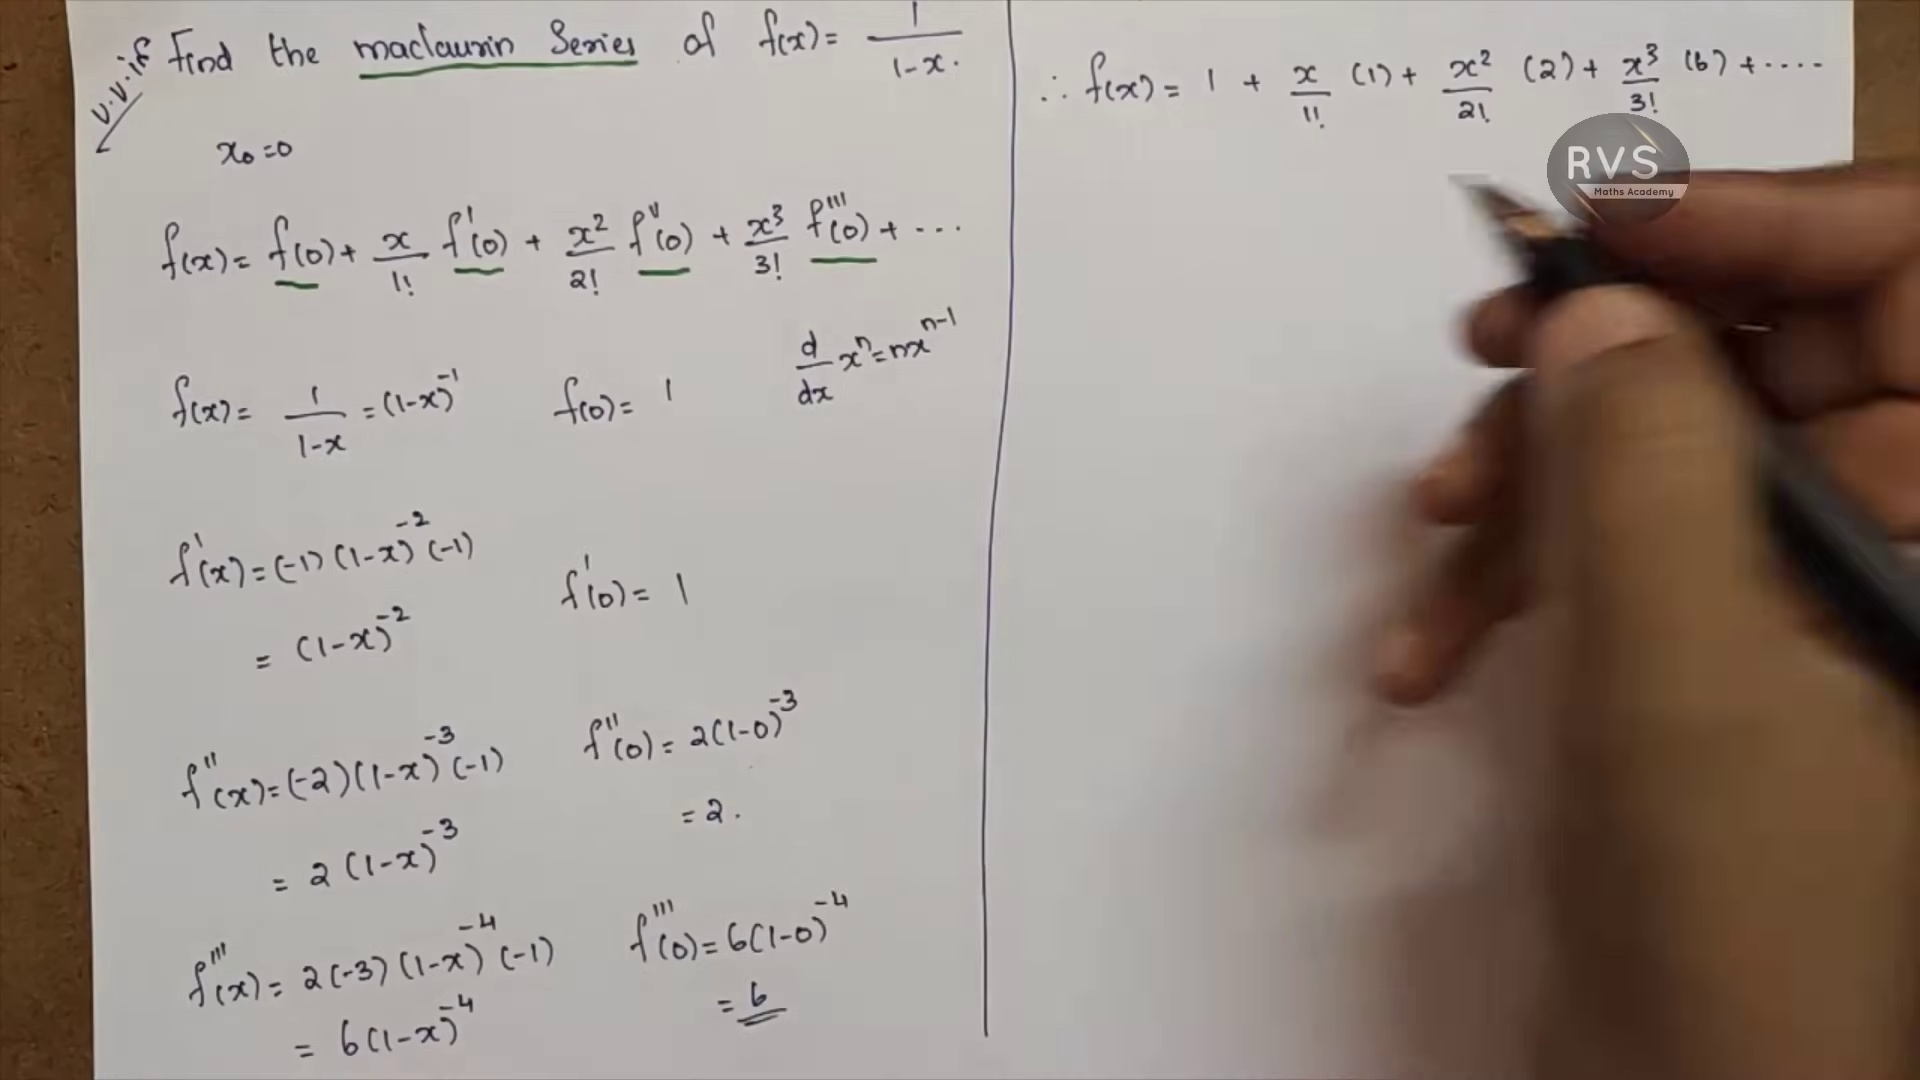 v.v.if Find the maclaurin Series of f(x) = 1/(1-x).
x₀ = 0
f(x) = f(0) + x/1! f'(0) + x²/2! f''(0) + x³/3! f'''(0) + ...
d/dx xⁿ = nxⁿ⁻¹
f(x) = 1/(1-x) = (1-x)⁻¹ f(0) = 1
f'(x) = (-1)(1-x)⁻²(-1)
= (1-x)⁻² f'(0) = 1
f''(x) = (-2)(1-x)⁻³(-1) f''(0) = 2(1-0)⁻³
= 2(1-x)⁻³ = 2.
f'''(x) = 2(-3)(1-x)⁻⁴(-1) f'''(0) = 6(1-0)⁻⁴
= 6(1-x)⁻⁴ = 6
∴ f(x) = 1 + x/1! (1) + x²/2! (2) + x³/3! (6) + ....
RVS
Maths Academy